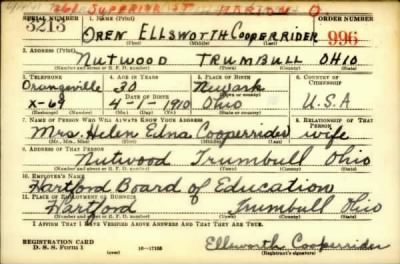 261 SUPERIOR ST MARION O.
SERIAL NUMBER 1. NAME (Print) ORDER NUMBER
3213 OREN ELLSWORTH COOPERRIDER 996
(First) (Middle) (Last)
2. ADDRESS (Print)
NUTWOOD TRUMBULL OHIO
(Number and street or R. F. D. number) (Town) (County) (State)
3. TELEPHONE 4. AGE IN YEARS 5. PLACE OF BIRTH 6. COUNTRY OF CITIZENSHIP
Orangeville 30 Newark
DATE OF BIRTH U.S.A
X-69 4-1-1910 Ohio
(Exchange) (Number) (Mo.) (Day) (Yr.) (State or country)
7. NAME OF PERSON WHO WILL ALWAYS KNOW YOUR ADDRESS 8. RELATIONSHIP OF THAT PERSON
Mrs. Helen Edna Cooperrider wife
(Mr., Mrs., Miss) (First) (Middle) (Last)
9. ADDRESS OF THAT PERSON
Nutwood Trumbull Ohio
(Number and street or R. F. D. number) (Town) (County) (State)
10. EMPLOYER'S NAME
Hartford Board of Education
11. PLACE OF EMPLOYMENT OR BUSINESS
Hartford Trumbull Ohio
(Number and street or R. F. D. number) (Town) (County) (State)
I AFFIRM THAT I HAVE VERIFIED ABOVE ANSWERS AND THAT THEY ARE TRUE.
REGISTRATION CARD
D. S. S. Form 1 16-17105 Ellsworth Cooperrider
(over) (Registrant's signature)